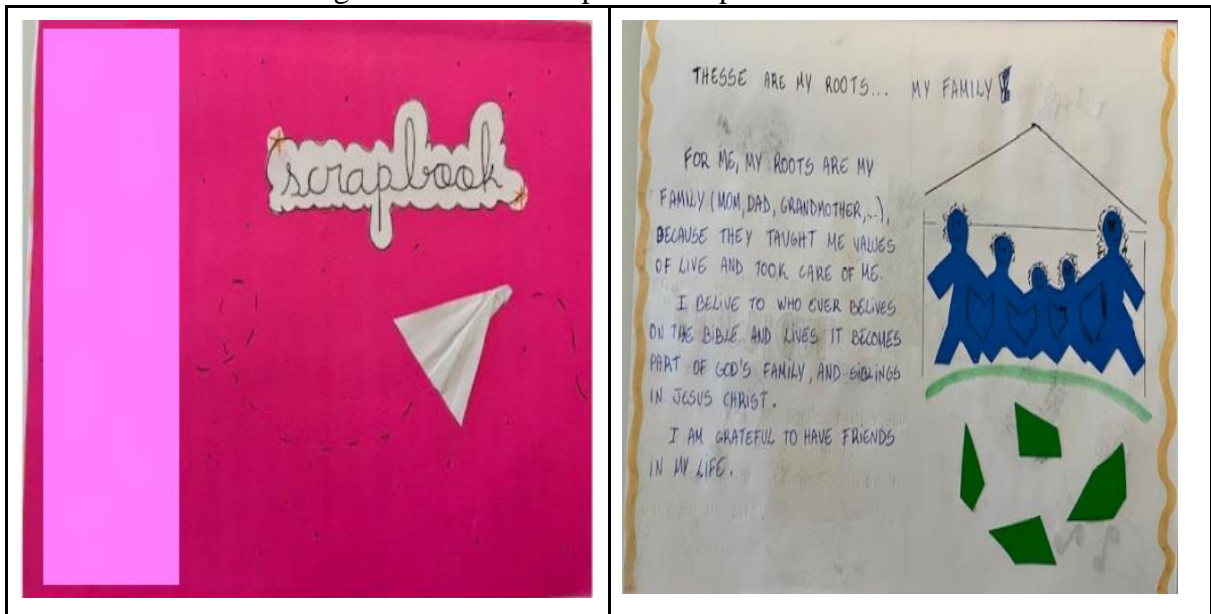 scrapbook
THESSE ARE MY ROOTS... MY FAMILY!
FOR ME, MY ROOTS ARE MY
FAMILY (MOM, DAD, GRANDMOTHER,...),
BECAUSE THEY TAUGHT ME VALUES
OF LIVE AND TOOK CARE OF ME.
I BELIVE TO WHO EVER BELIVES
ON THE BIBLE AND LIVES IT BECOMES
PART OF GOD'S FAMILY, AND SIBLINGS
IN JESUS CHRIST.
I AM GRATEFUL TO HAVE FRIENDS
IN MY LIFE.